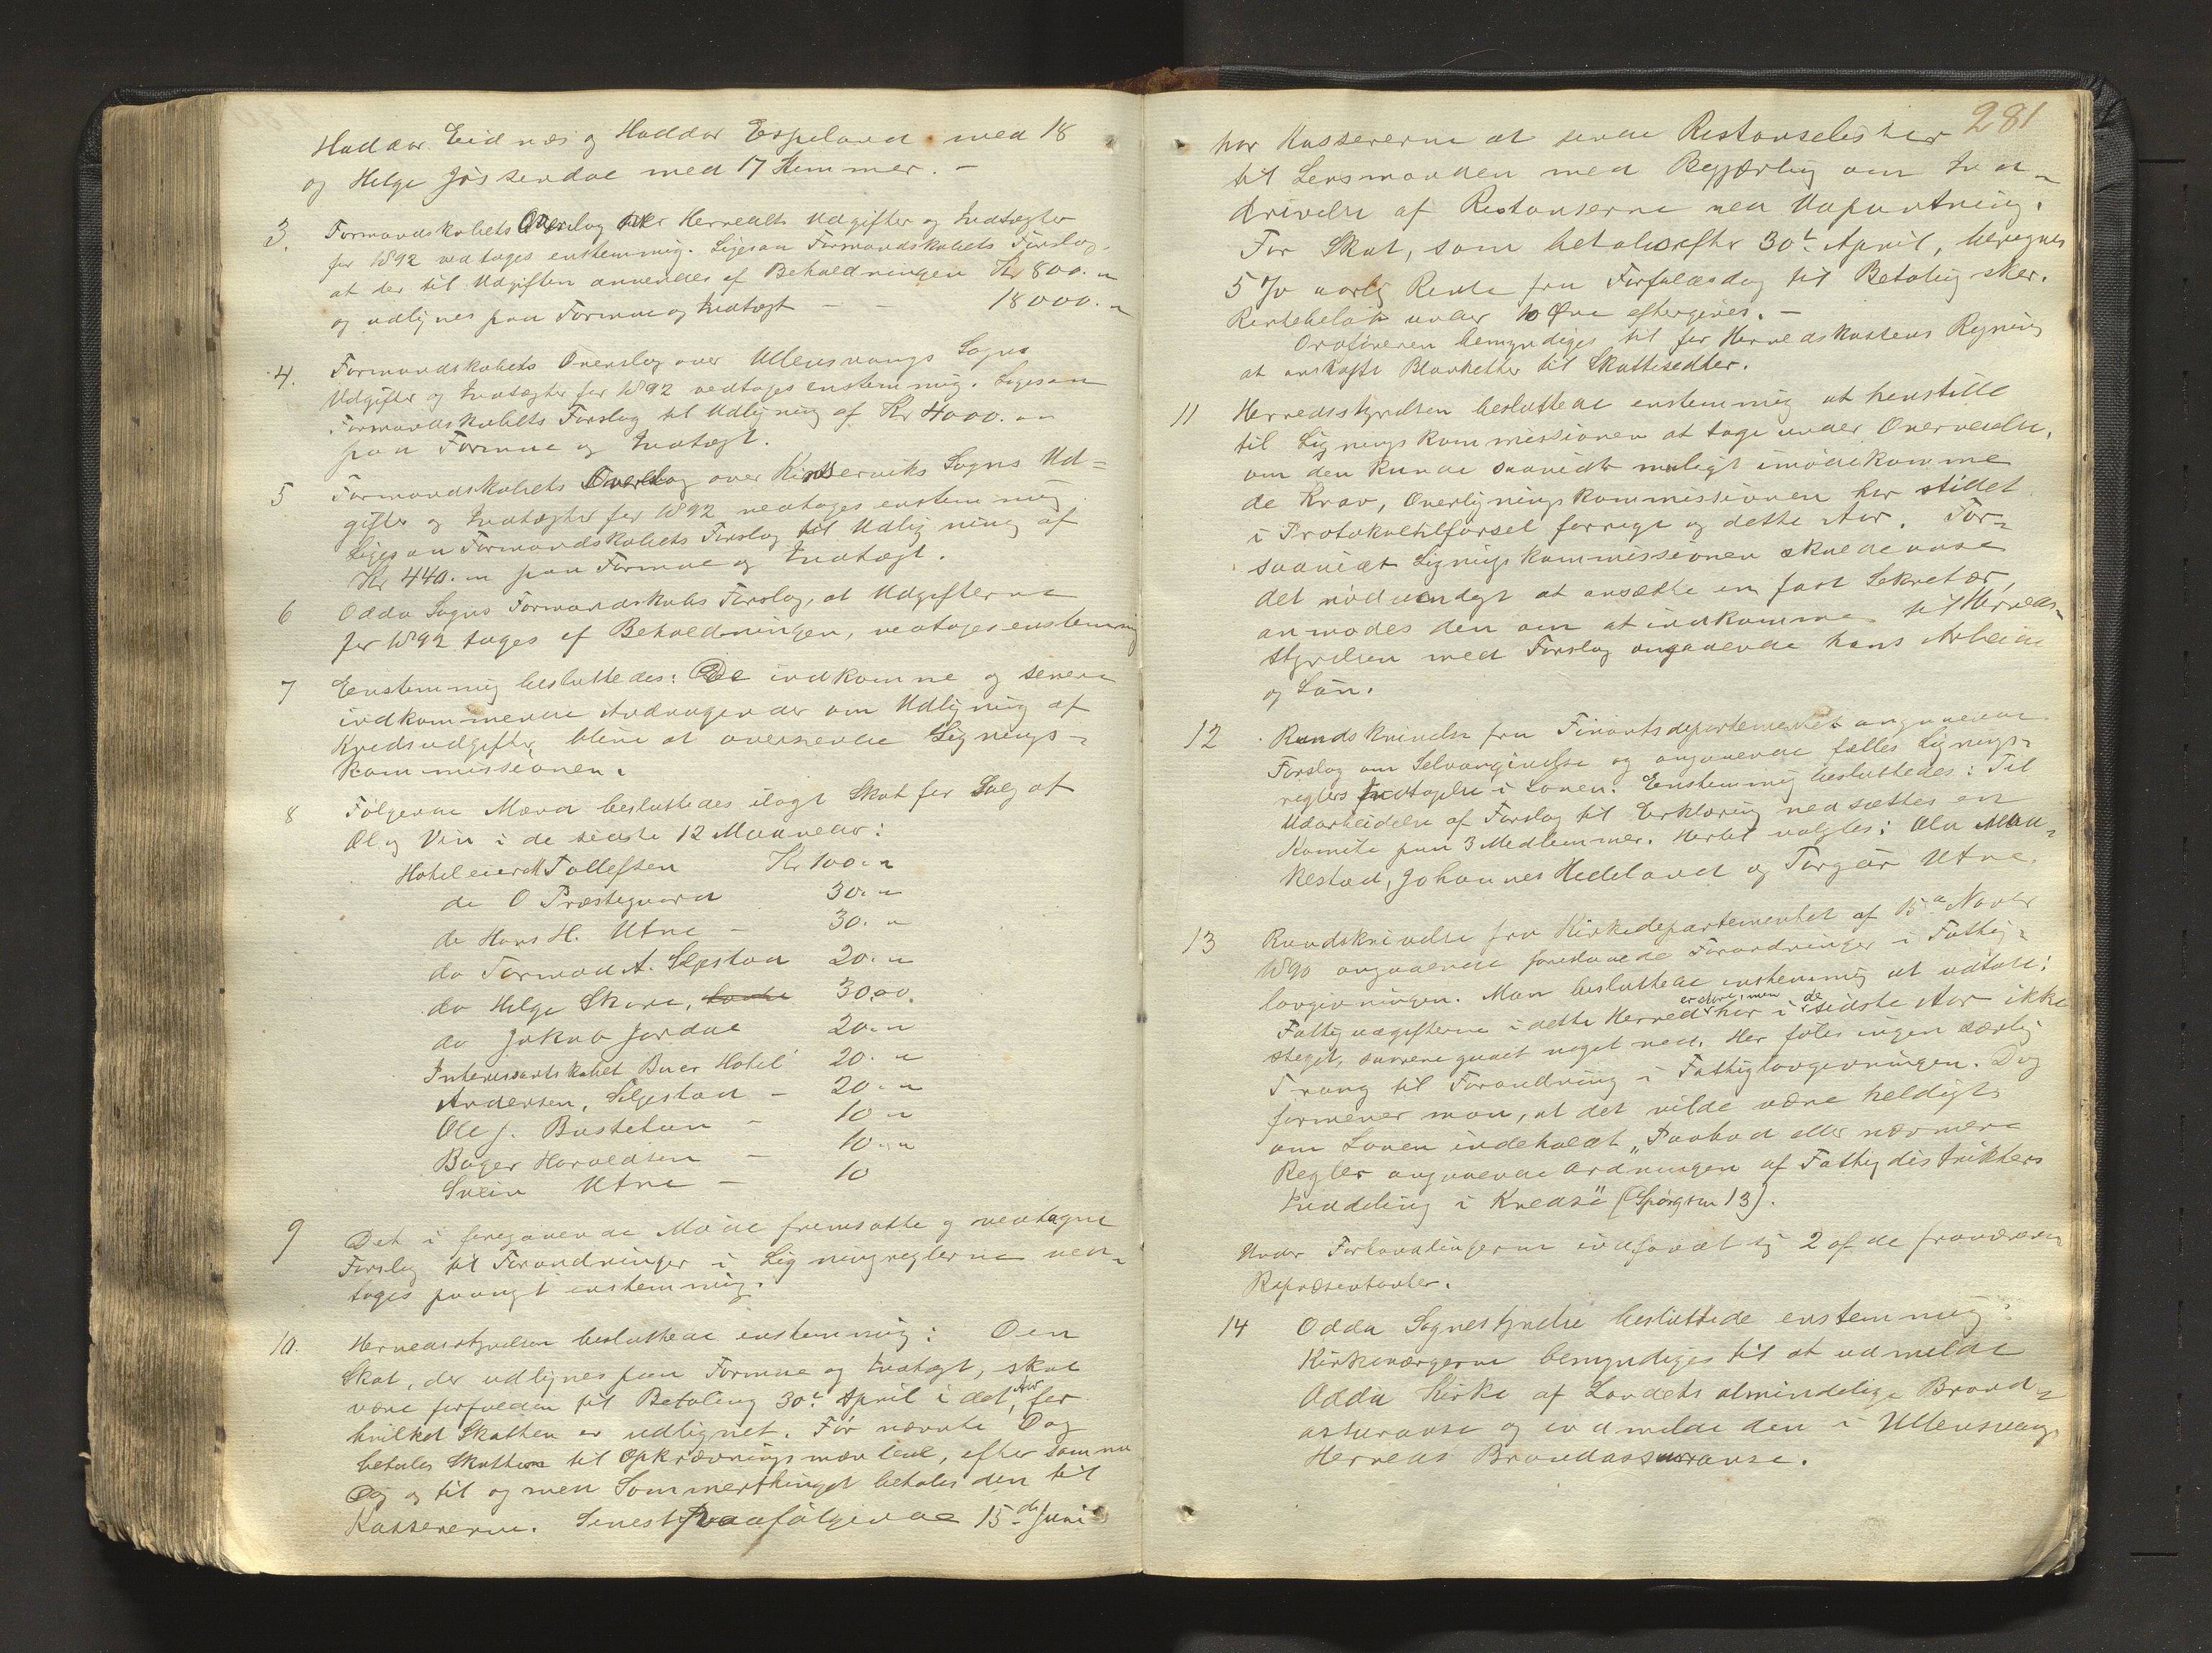 Haldor Eidnæs og Haldor Espeland med 18
og Helge Jösendal med 17 Stemmer. –
3. Formandskabets Overslag over Herredets Udgifter og Indtægter
for 1892 vedtages enstemmig. Ligesaa Formandskabets Forslag
at der til Udgiften anvendes af Beholdningen Kr 800. "
og udlignes paa Formue og Indtægt – – 18000. "
4. Formandskabets Overslag over Ullensvangs Sogns
Udgifter og Indtægter for 1892 vedtages enstemmig. Ligesaa
Formandskabets Forslag til Udligning af Kr 4000. "
paa Formue og Indtægt.
5 Formandskabets Overslag over Kinserviks Sogns Ud=
gifter og Indtægter for 1892 vedtages enstemmig
Ligesaa Formandskabets Forslag til Udligning af
Kr 440. " paa Formue og Indtægt.
6 Odda Sogns Formandskabs Forslag, at Udgifterne
for 1892 tages af Beholdningen, vedtages enstemmig
7 Enstemmig besluttedes: De indkomne og senere
indkommende Andragender om Udligning af
Kredsudgifter blive at oversende Lignings-
kommissionen.
8 Følgende Mænd besluttedes ilagt Skat for Salg af
Øl og Vin i de sidste 12 Maaneder:
Hoteleier M Tollefsen Kr 100. "
do O Præstegaard 30. "
do Hans H. Utne – 30. "
do Tormod A. Seljestad 20. "
do Helge Skare, 30.00.
do Jakob Jordal 20. "
Interessentskabet Buer Hotel 20. "
Andersen, Seljestad – 20. "
Ole J. Bustetun – 10 "
Bager Haraldsen – 10. "
Svein Utne – 10
9 Det i foregaaende Møde fremsatte og vedtagne
Forslag til Forandringer i Ligningsreglerne ved-
tages paanyt enstemmig.
10. Herredsstyrelsen besluttede enstemmig: Den
Skat, der udlignes paa Formue og Indtægt, skal
være forfalden til Betaling 30t April i det Aar, for
hvilket Skatten er udlignet. Før nævnte Dag
betales Skatten til Opkrævningsmændene, efter samme
Dag og til og med Sommerthinget betales den til
Kassererne. Senest paafølgende 15de Juni
281
har Kassererne at sende Restanselister
til Lensmanden med Begjæring om Ind-
drivelse af Restanserne ved Udpantning.
For Skat, som betales efter 30t April, beregnes
5 % aarlig Rente fra Forfaldsdag til Betaling sker.
Rentebeløb under 10 Øre eftergives. –
Ordføreren bemyndiges til for Herredskassens Regning
at anskaffe Blanketter til Skattesedler.
11 Herredsstyrelsen besluttede enstemmig at henstille
til Ligningskommissionen at tage under Overveielse,
om den kunde saavidt muligt imødekomme
de Krav, Overligningskommissionen har stillet
i Protokoltilførsel forrige og dette Aar. For-
saavidt Ligningskommissionen skulde anse
det nødvendigt at ansætte en fast Sekretær,
anmodes den om at indkomme til Herreds-
styrelsen med Forslag angaaende hans Arbeide
og Løn.
12 Rundskrivelse fra Finantsdepartementet angaaende
Forslag om Selvangivelse og angaaende fælles Lignings-
reglers Indtagelse i Loven. Enstemmig besluttedes: Til
Udarbeidelse af Forslag til Erklæring nedsættes en
Komite paa 3 Medlemmer. Hertil valgtes: Ola Mau-
kestad, Johannes Hedeland og Torgær Utne.
13 Rundskrivelse fra Kirkedepartementet af 15de Novbr
1890 angaaende foreslaaede Forandringer i Fattig-
lovgivningen. Man besluttede enstemmig at udtale:
Fattigudgifterne i dette Herred er store, men har i de sidste Aar ikke
steget, snarere gaaet noget ned. Her føles ingen særlig
Trang til Forandring i Fattiglovgivningen. Dog
formener man, at det vilde være heldigt,
om Loven indeholdt "Paabud eller nærmere
Regler angaaende Ordningen af Fattigdistrikters
Inddeling i Kredse" (Spørgsm 13).
Under Forhandlingerne indfandt sig 2 af de fraværende
Repræsentanter.
14 Odda Sognestyrelse besluttede enstemmig:
Kirkeværgerne bemyndiges til at udmelde
Odda Kirke af Landets almindelige Brand-
assuranse og indmelde den i Ullensvang
Herreds Brandassuranse.